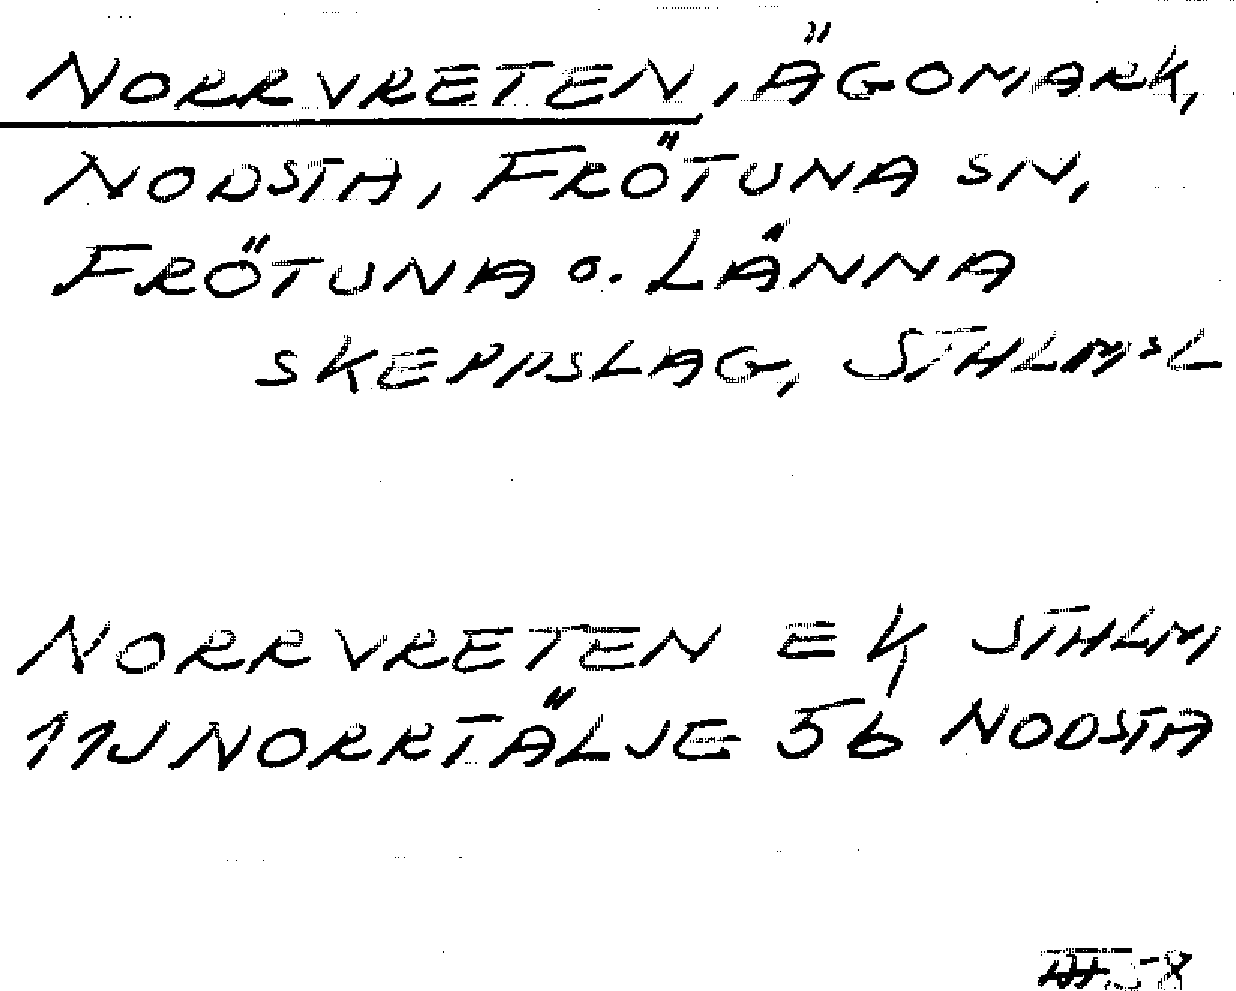 NORRVRETEN, ÄGOMARK,
NODSTA, FRÖTUNA SN,
FRÖTUNA o. LÄNNA
SKEPPSLAG, STHLMSL
NORRVRETEN EK STHLM
11J NORRTÄLJE 5b NODSTA